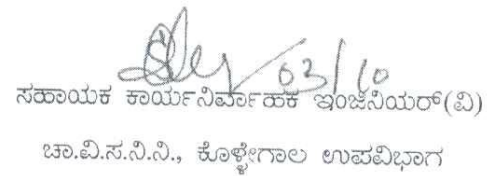 03/10
ಸಹಾಯಕ ಕಾರ್ಯನಿರ್ವಾಹಕ ಇಂಜಿನಿಯರ್(ವಿ)
ಚಾ.ವಿ.ಸ.ನಿ.ನಿ., ಕೊಳ್ಳೇಗಾಲ ಉಪವಿಭಾಗ